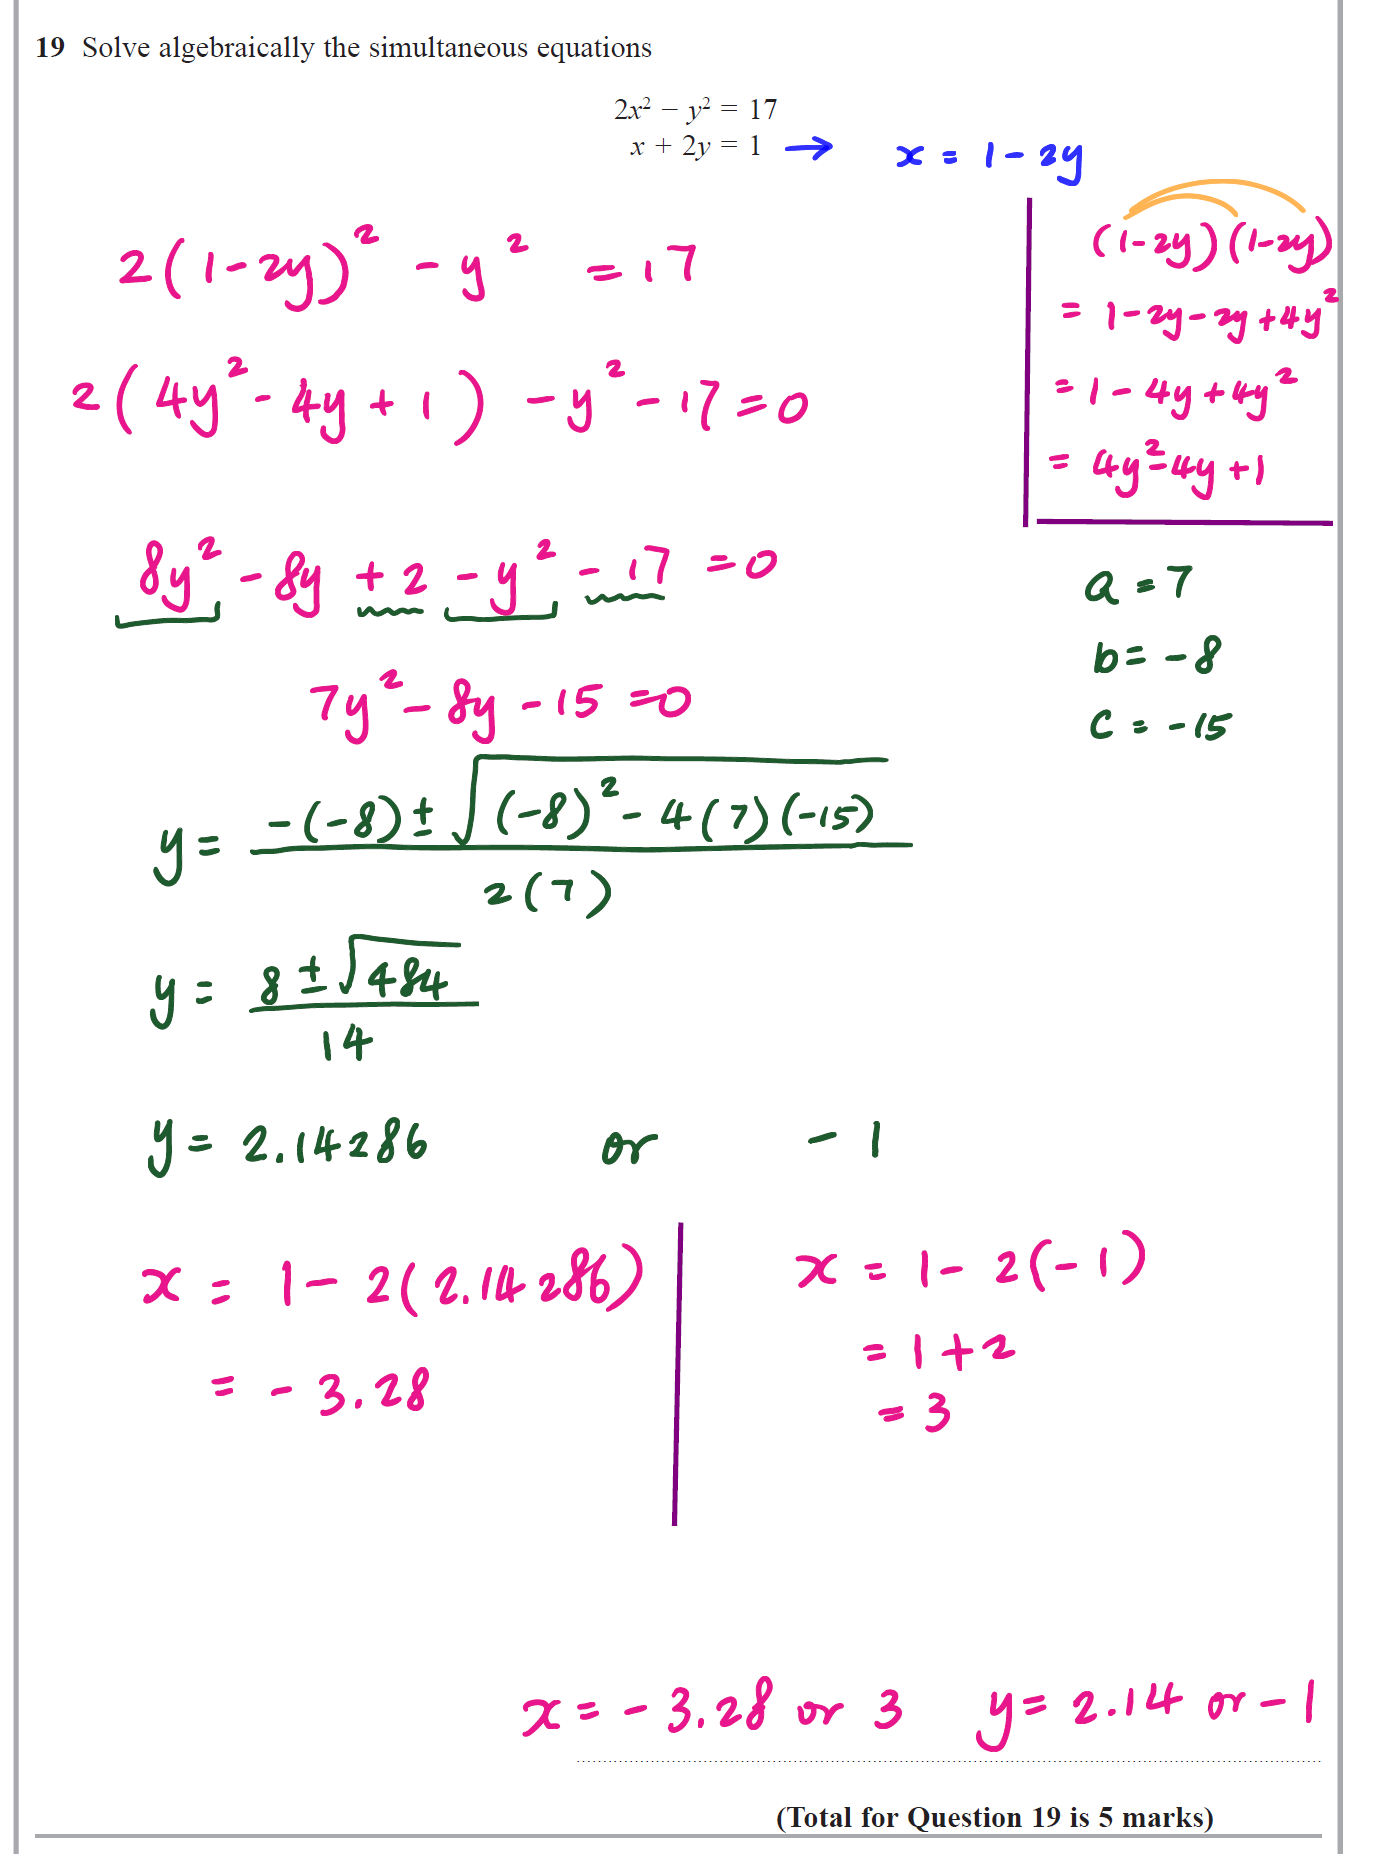 19 Solve algebraically the simultaneous equations
2x² − y² = 17
x + 2y = 1 → x = 1 - 2y
2(1-2y)² - y² = 17
2(4y² - 4y + 1) - y² - 17 = 0
8y² - 8y + 2 - y² - 17 = 0
7y² - 8y - 15 = 0
(1-2y)(1-2y)
= 1-2y-2y+4y²
= 1 - 4y + 4y²
= 4y² - 4y + 1
a = 7
b = -8
c = -15
y = (-(-8) ± √((-8)² - 4(7)(-15))) / 2(7)
y = (8 ± √484) / 14
y = 2.14286 or -1
x = 1 - 2(2.14286)
= -3.28
x = 1 - 2(-1)
= 1 + 2
= 3
x = -3.28 or 3 y = 2.14 or -1
(Total for Question 19 is 5 marks)